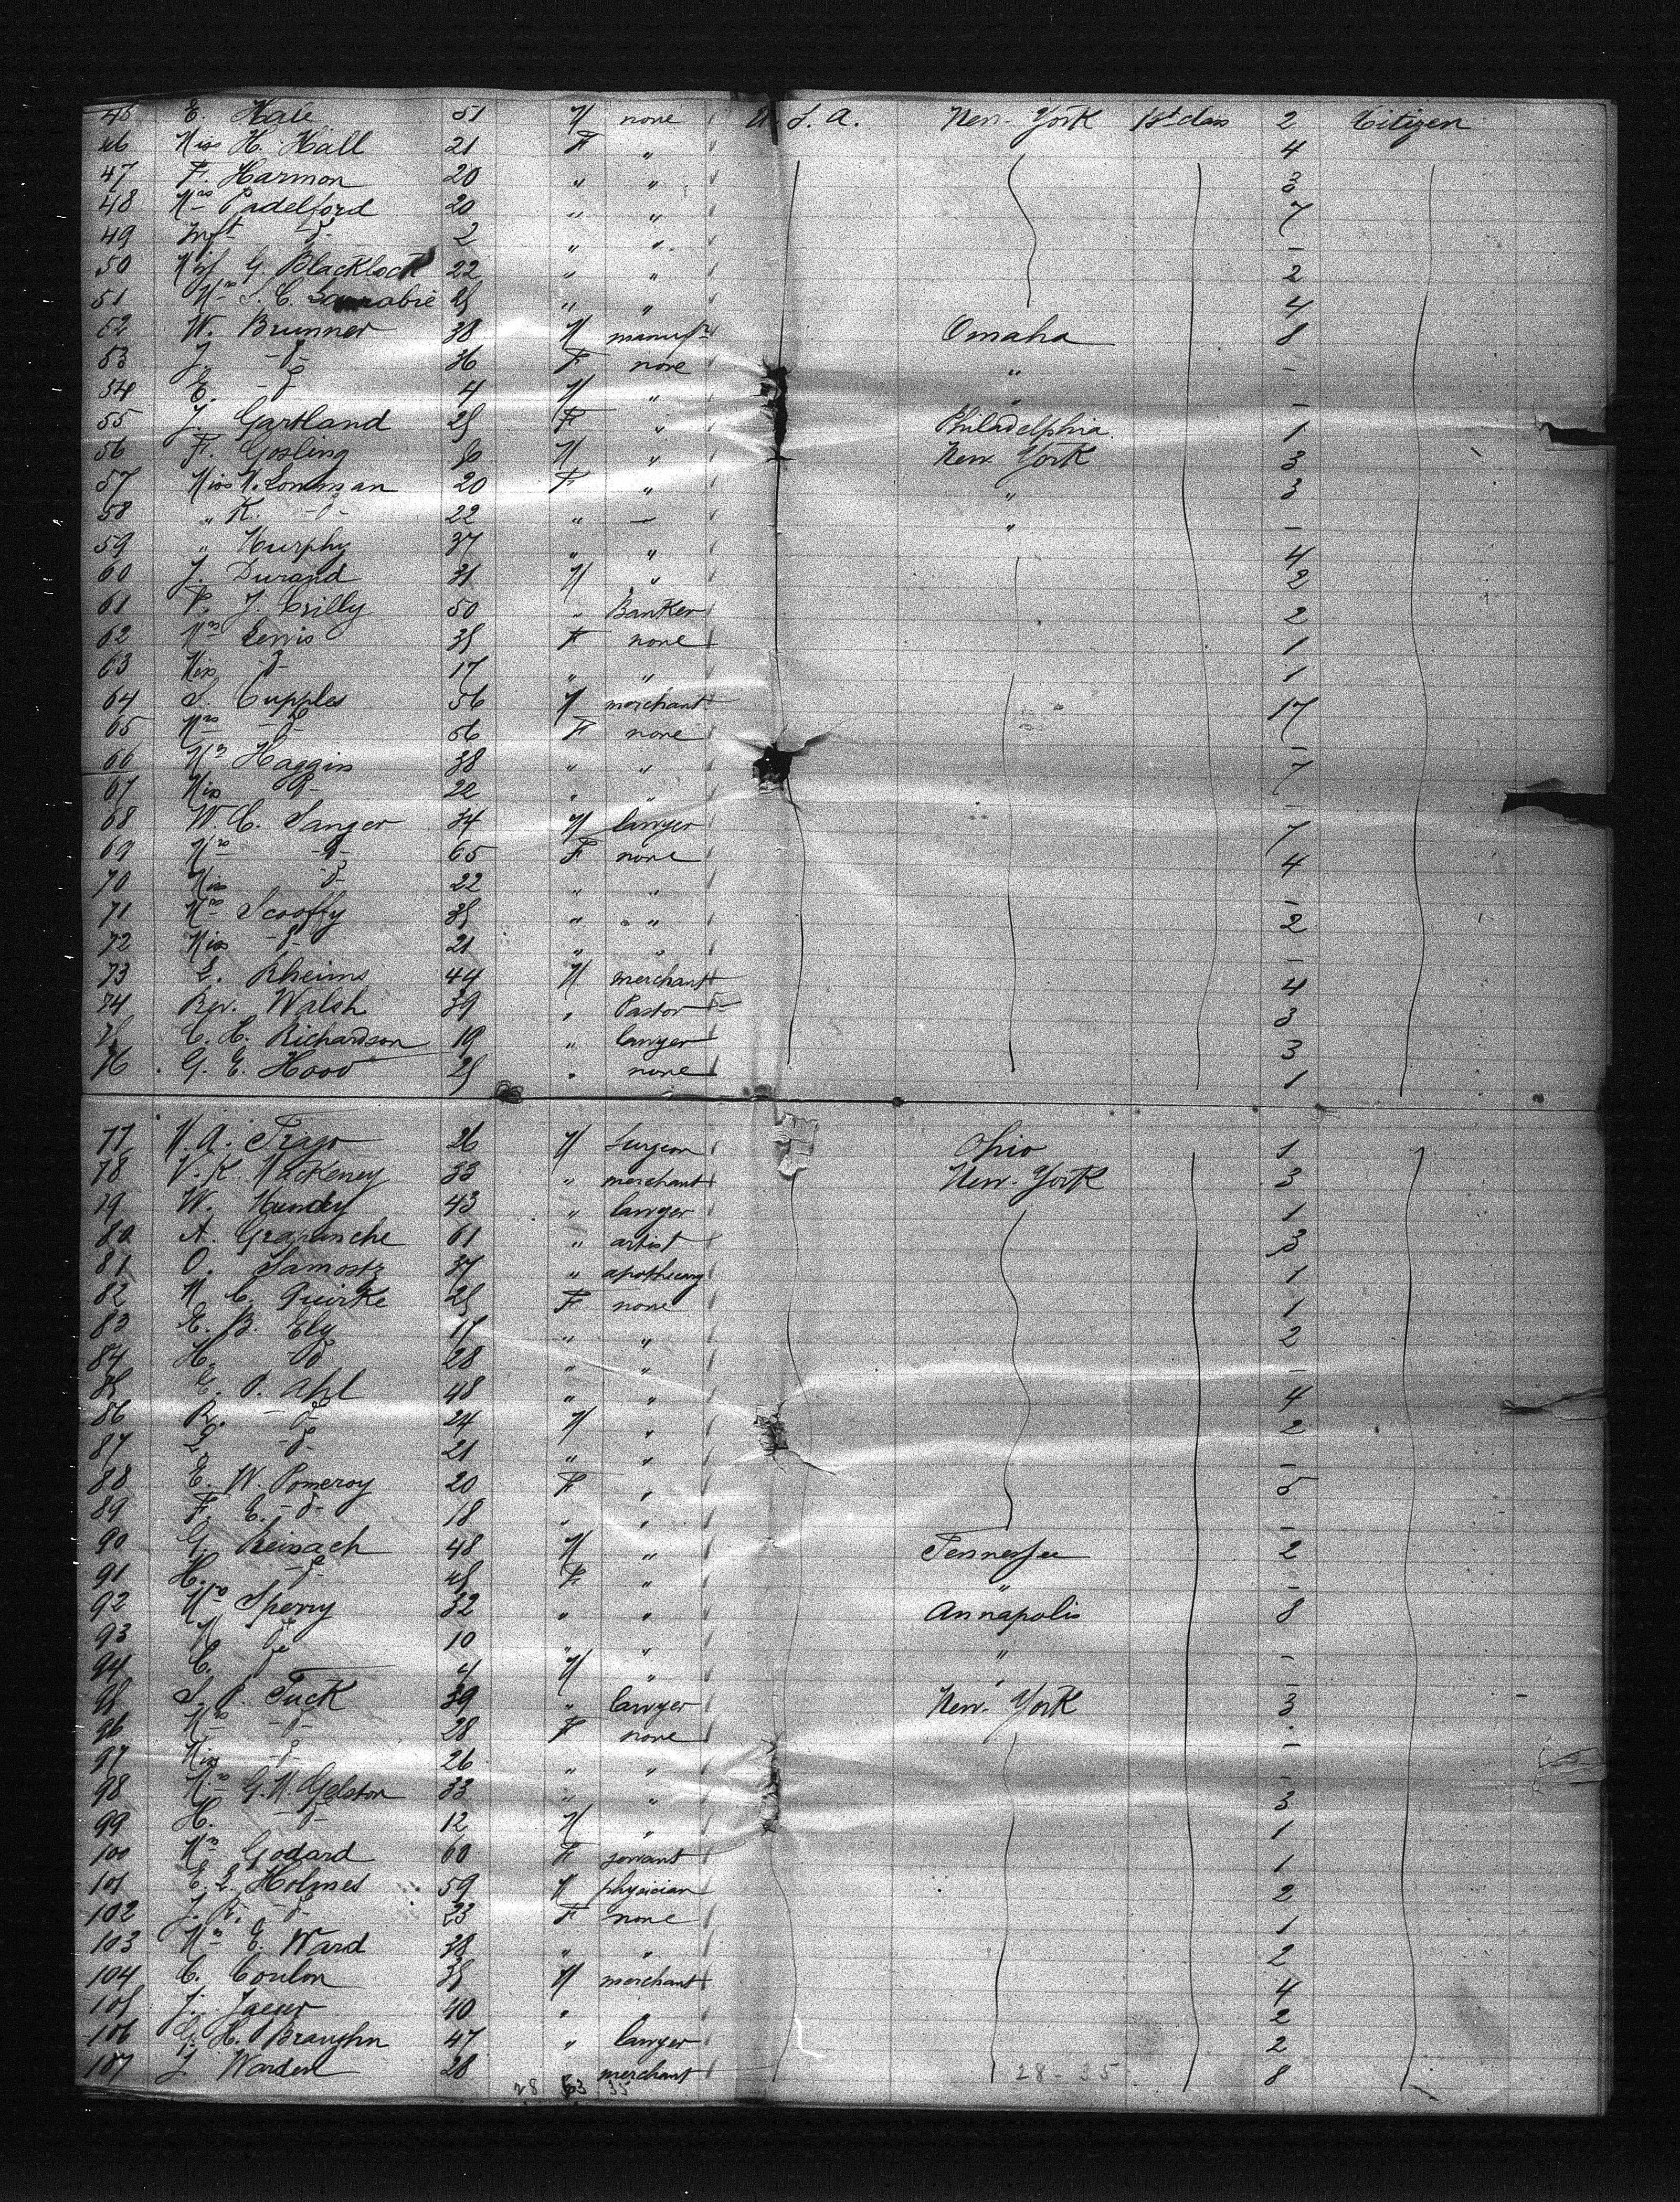 45 E. Hale 51 M none U. S. A. New-York 1st class 2 Citizen
46 Miss H. Hall 21 F " 4
47 F. Harmon 20 " " 3
48 Mrs Padelford 20 " " 7
49 Inft -d- 2 " " -
50 Miss G. Blacklock 22 " " 2
51 Mrs S. C. 25 " " 4
52 W. Brunner 38 M manufr Omaha 8
53 J. -d- 36 F none " -
54 E. -d- 4 M " " -
55 J. Gartland 25 F " Philadelphia 1
56 F. Gosling M " New-York 3
57 Miss M. Lowman 20 F " " 3
58 " K. -d- 22 " — " -
59 " Murphy 37 " " 4
60 J. Durand 31 M " 2
61 P. J. Crilly 50 " Banker 2
62 Mrs Lewis 35 F none 1
63 Miss -d- 17 " " 1
64 S. Cupples 56 M merchant 17
65 Mrs -d- 56 F none -
66 Mrs Haggin 38 " " 7
67 Miss -d- 22 " " -
68 W. C. Sanger 34 M lawyer 7
69 Mrs -d- 65 F none 4
70 Miss -d- 22 " " -
71 Mrs Scooffy 35 " " 2
72 Miss -d- 21 " " -
73 L. Rheims 44 M merchant 4
74 Rev. Walsh 39 " Pastor 3
75 C. H. Richardson 19 " lawyer 3
76 G. E. Hood 25 " none 1
77 M. A. Trago 26 M Surgeon Ohio 1
78 V. K. MacKeney 33 " merchant New-York 3
79 W. Mundy 43 " lawyer 1
80 A. 61 " artist 3
81 O. Samostz 37 " apothecary 1
82 M. C. Quirke 25 F none 1
83 E. B. Ely 17 " " 2
84 H. -d- 28 " " -
85 E. P. Ahl 48 " " 4
86 R. -d- 24 M " 2
87 L. -d- 21 " " -
88 E. W. Pomeroy 20 F " 5
89 F. E. -d- 18 " " -
90 G. Reinach 48 M " Tennessee 2
91 H. -d- 45 F " " -
92 Mrs Sperry 32 " " Annapolis 8
93 M. -d- 10 " " " -
94 C. -d- 4 M " " -
95 S. P. Tuck 39 " lawyer New-York 3
96 Mrs -d- 28 F none -
97 Miss -d- 26 " " -
98 Mrs G. M. Gelston 33 " " 3
99 H. -d- 12 M " 1
100 Mrs Godard 60 F servant 1
101 E. L. Holmes 59 M physician 2
102 J. R. -d- 23 F none 1
103 Mrs E. Ward 38 " " 2
104 C. Coulon 35 M merchant 4
105 J. Jaeger 40 " 2
106 G. H. Braughn 47 " lawyer 2
107 J. Warden 28 " merchant 8
28 63 35 28-35